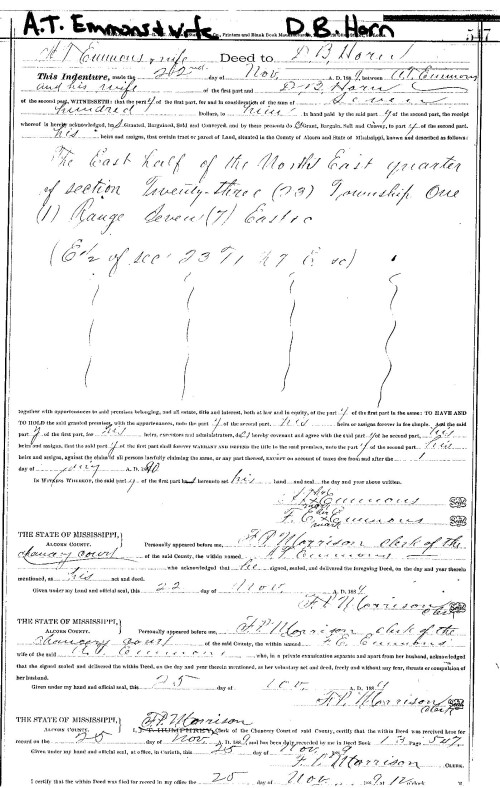 A.T. Emmons & wife D B Horn
Co., Printers and Blank Book Manufacturers 547
A T Emmons & wife Deed to D B Horn
This Indenture, made the 22nd day of Nov. A. D. 1889, between A T Emmons
and his wife of the first part and D. B. Horn
of the second part, WITNESSETH: that the part y of the first part, for and in consideration of the sum of Seven
hundred Dollars, to him in hand paid by the part y of the second part, the receipt
whereof is hereby acknowledged, ha s Granted, Bargained, Sold and Conveyed, and by these presents do Grant, Bargain, Sell and Convey, to part y of the second part,
his heirs and assigns, that certain tract or parcel of Land, situated in the County of Alcorn and State of Mississippi, known and described as follows:
The East half of the North East quarter
of section Twenty-three (23) Township One
(1) Range Seven (7) East
(E 1/2 of sec 23 T 1 R 7 E)
together with appurtenances to said premises belonging, and all estate, title and interest, both at law and in equity, of the part y of the first part in the same: TO HAVE AND
TO HOLD the said granted premises, with the appurtenances, unto the part y of the second part, his heirs or assigns forever in fee simple. And the said
part y of the first part, for his heirs, executors and administrators, do hereby covenant and agree with the said part y of the second part, his
heirs and assigns, that the said part y of the first part shall forever WARRANT AND DEFEND the title to the said premises, unto the part y of the second part, his
heirs and assigns, against the claim of all persons lawfully claiming the same, or any part thereof, except on account of taxes due from and after the 1
day of A. D. 1890
IN WITNESS WHEREOF, the said part y of the first part ha hereunto set his hand and seal the day and year above written.
A. T. his x mark Emmons
F. E. her x mark Emmons
THE STATE OF MISSISSIPPI,
ALCORN COUNTY. Personally appeared before me, F. P. Morrison clerk of the
chancery court of the said County, the within named A T Emmons
who acknowledged that he signed, sealed, and delivered the foregoing Deed, on the day and year therein
mentioned, as his act and deed.
Given under my hand and official seal, this 22 day of Nov. A. D. 1889
F. P. Morrison
clerk
THE STATE OF MISSISSIPPI,
ALCORN COUNTY. Personally appeared before me, F. P. Morrison clerk of the
chancery court of the said County, the within named F. E. Emmons
wife of the said A T Emmons who, in a private examination separate and apart from her husband, acknowledged
that she signed sealed and delivered the within Deed, on the day and year therein mentioned, as her voluntary act and deed, freely and without any fear, threats or compulsion of
her husband.
Given under my hand and official seal, this 25 day of Nov. A. D. 1889
F. P. Morrison
clerk
THE STATE OF MISSISSIPPI,
ALCORN COUNTY. F. P. Morrison
I, J. T. HUMPHREY, Clerk of the Chancery Court of said County, certify that the within Deed was received here for
record on the 25 day of Nov. 1889 and has been duly recorded by me in Deed Book 13 Page 547.
Given under my hand and official seal, at office, in Corinth, this 25 day of Nov. 9
F. P. Morrison CLERK.
I certify that the within Deed was filed for record in my office the 25 day of Nov. 1889, at 12 o'clock M.